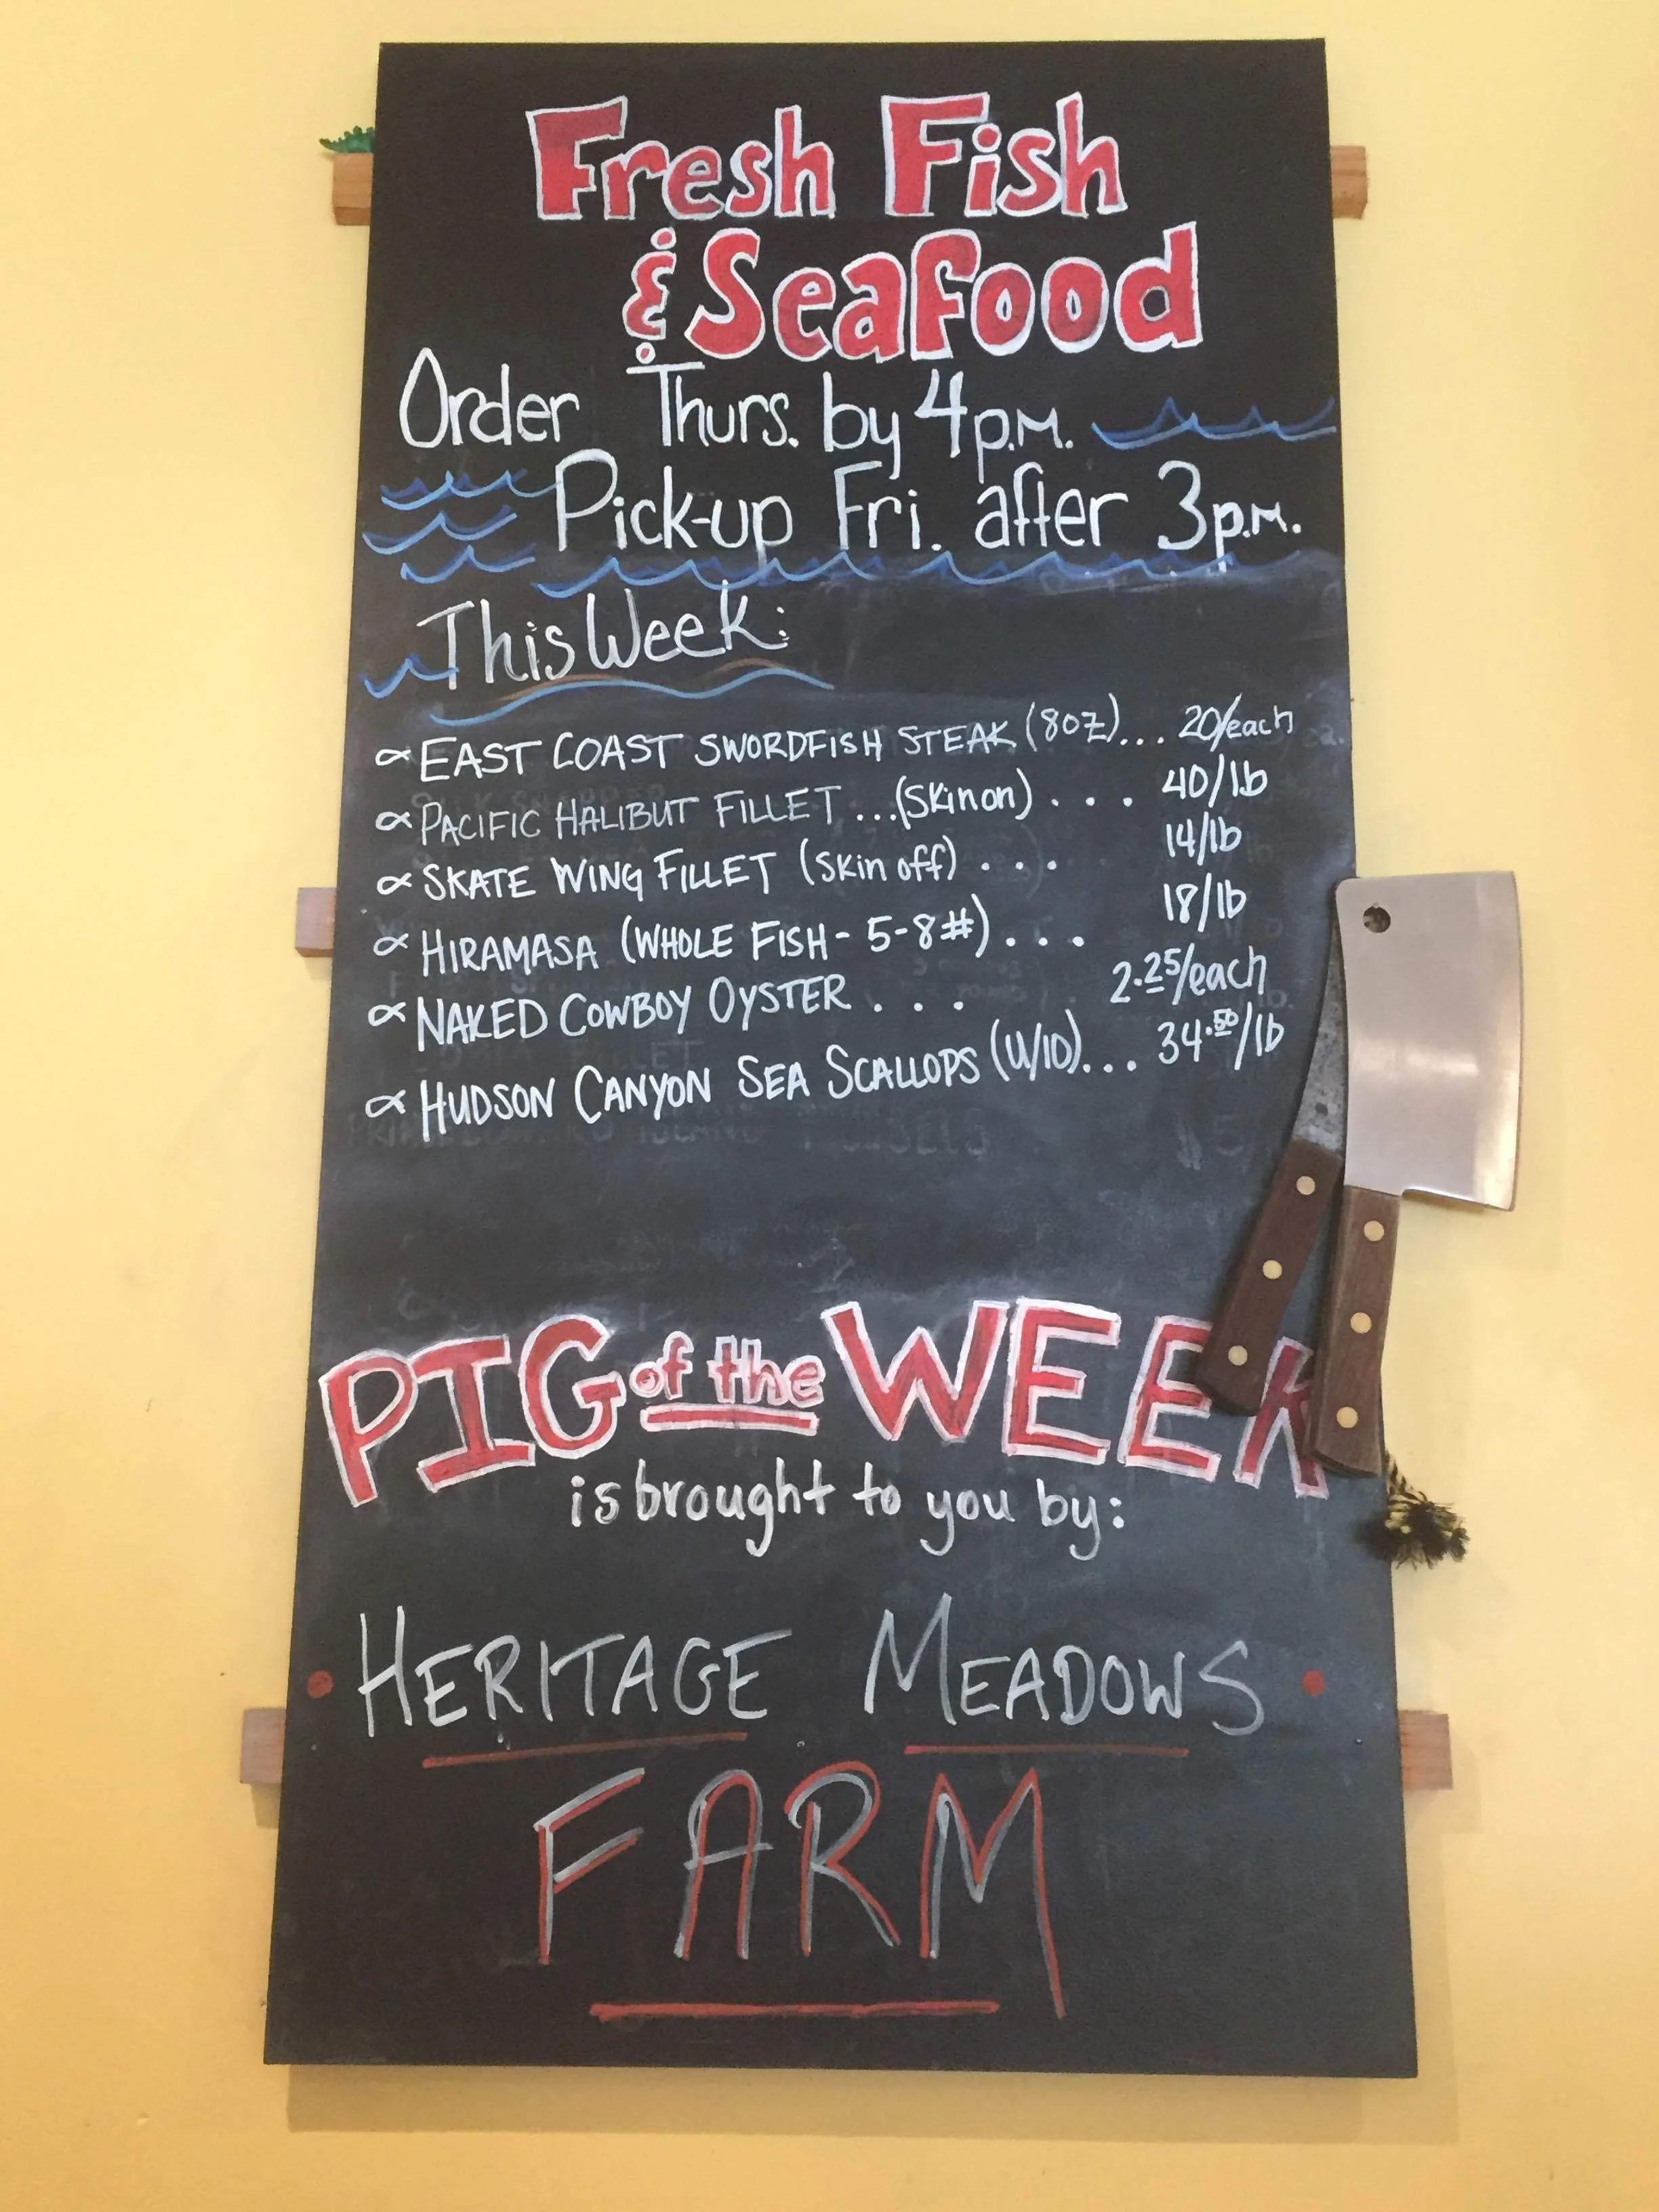 Fresh Fish
& Seafood
Order Thurs. by 4p.m.
Pick-up Fri. after 3p.m.
This Week:
EAST COAST SWORDFISH STEAK (8oz)... 20/each
PACIFIC HALIBUT FILLET ...(Skin on) ... 40/lb
SKATE WING FILLET (Skin off) ... 14/lb
HIRAMASA (WHOLE FISH - 5-8#) ... 18/lb
NAKED COWBOY OYSTER ... 2.25/each
HUDSON CANYON SEA SCALLOPS (U/10)... 34.50/lb
PIG of the WEEK
is brought to you by:
HERITAGE MEADOWS
FARM